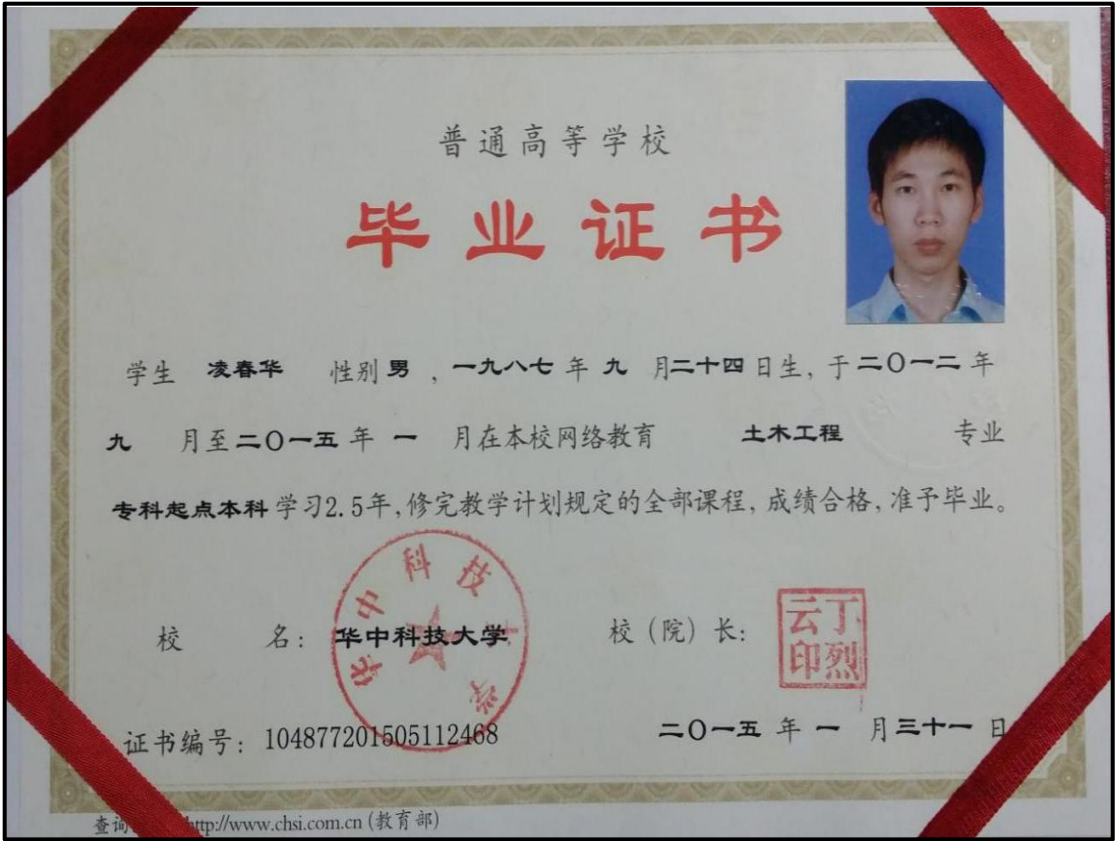 普通高等学校
毕业证书
学生 凌春华 性别 男 , 一九八七 年 九 月 二十四 日生, 于 二〇一二 年
九 月至 二〇一五 年 一 月在本校网络教育 土木工程 专业
专科起点本科 学习2.5年, 修完教学计划规定的全部课程, 成绩合格, 准予毕业。
华中科技大学
校 名: 华中科技大学 校(院)长:
丁烈云印
证书编号: 104877201505112468 二〇一五 年 一 月 三十一 日
查询 http://www.chsi.com.cn (教育部)